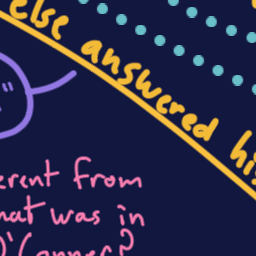 else answered hi
erent from
hat was in